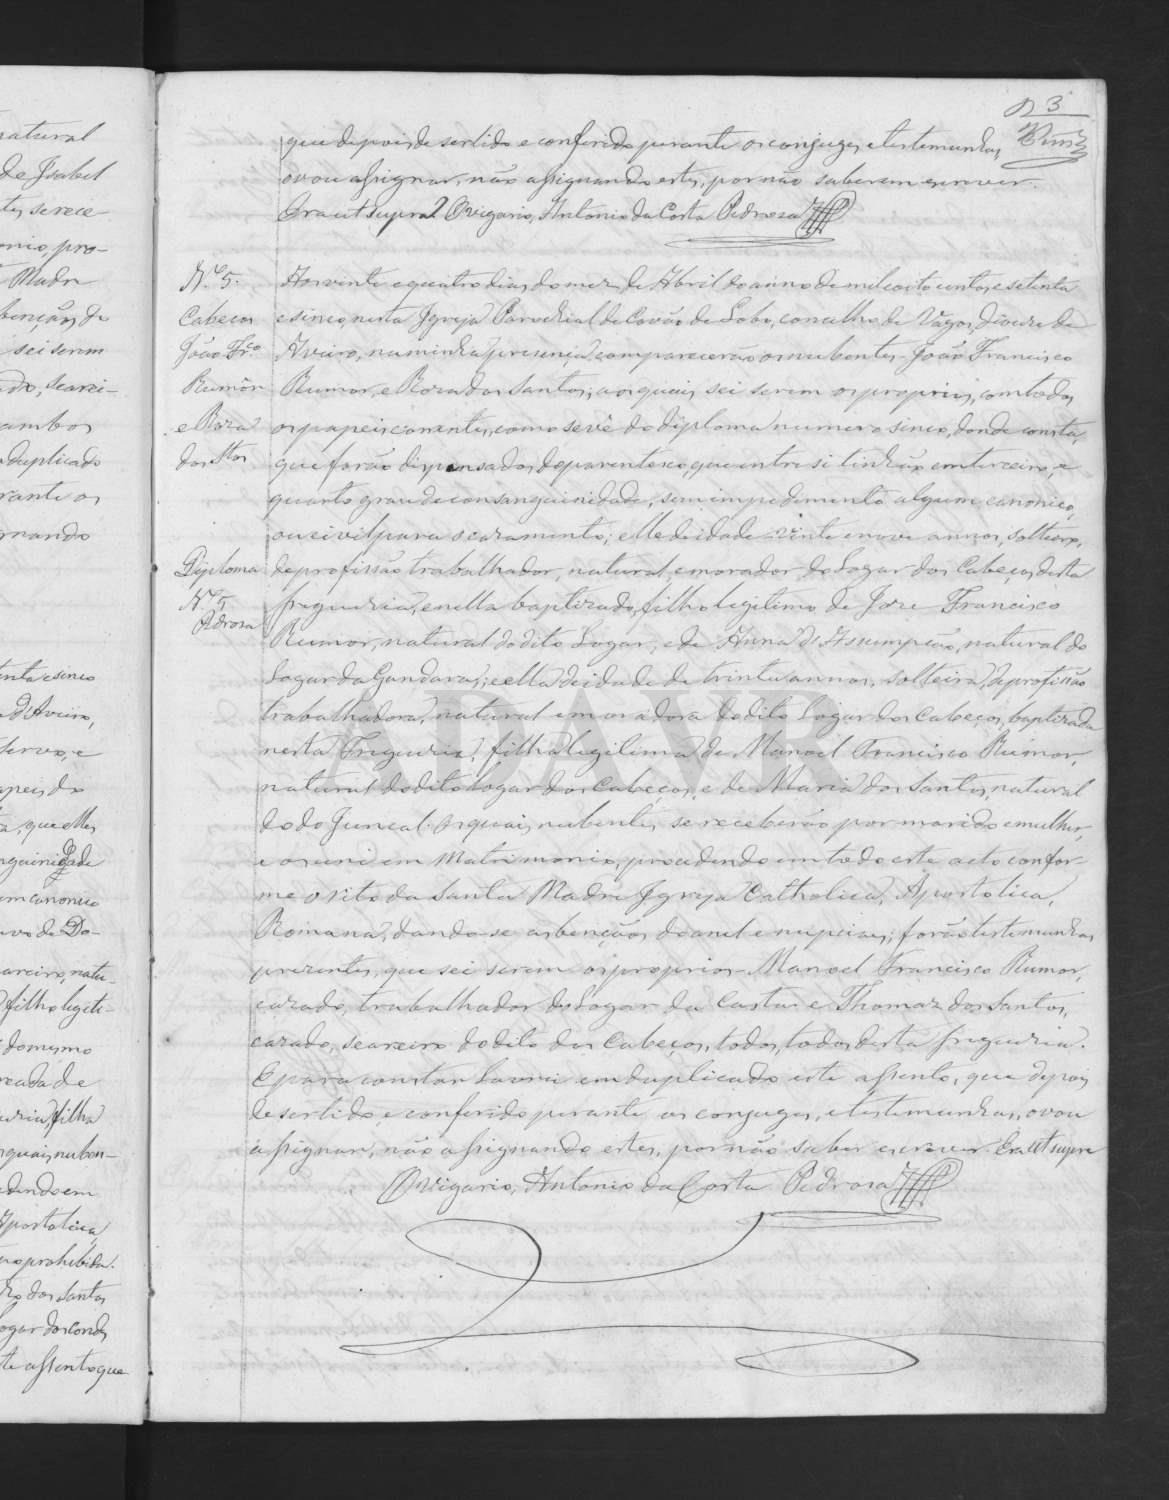 natural
de Isabel
tes, se rece
monio, pro-
Madre
benção, de
sei serem
ado, seavei-
ambos
duplicado
rante os
rnando
tenta e sinco
d'Aveiro,
Servo, e
apeis do
ta, que elles
nguinidade
em canonico
uvo de Do-
areiro, natu-
filho legiti-
do mesmo
reada de
filha
quais nuben-
dendo em
Apostolica,
prohibida.
dos Santos
Logar dos Condes
te assento que
N 3
que depois de ser lido e conferido perante os conjuges, e testemunhas,
o vou assignar, não assignando estes, por não saberem escrever.
Era ut supra O Vigario, Antonio da Costa Pedrosa
N.º 5.
Cabeços
João Fr.co
Rumôr
e Roza
dos Stos
Diploma
N.º 5
Pedrosa
Aos vinte e quatro dias do mez de Abril do anno de mil e oito centos e setenta
e sinco, nesta Igreja Parochial de Covão de Lobo, concelho de Vagos, Diocese de
Aveiro, na minha presença, comparecerão os nubentes - João Francisco
Rumor, e Roza dos Santos; aos quais sei serem os proprios, com todos
os papeis correntes, como se vê do diploma numero sinco, donde consta,
que forão dispensados do parentesco, que entre si tinhão em terceiro, e
quarto grau de consanguinidade, sem impedimento algum canonico,
ou civil para o cazamento; elle de idade vinte e nove annos, solteiro,
de profissão trabalhador, natural, e morador, do Logar dos Cabeços desta
freguezia, e nella baptizado, filho legitimo de Joze Francisco
Rumor, natural do dito Logar, e de Anna d'Assumpção, natural do
Logar da Gandara; e ella de idade de trinta annos, solteira, de profissão
trabalhadora, natural e moradora do dito Logar dos Cabeços, baptizada
nesta Freguezia, filha legitima de Manoel Francisco Rumor,
natural do dito Logar dos Cabeços, e de Maria dos Santos, natural
do do Juncal. Os quais nubentes se receberão por marido e mulher,
e os uni em Matrimonio, procedendo em todo este acto confor-
me o rito da Santa Madre Igreja Catholica, Apostolica,
Romana, dando-se as benções do anel e nupciaes; forão testemunhas
prezentes, que sei serem os proprios - Manoel Francisco Rumor,
cazado, trabalhador do Logar da Costa e Thomaz dos Santos,
cazado, seareiro do dito dos Cabeços, todos, todos desta freguezia.
E para constar lavrei em duplicado este assento, que depois
de ser lido, e conferido perante os conjuges, e testemunhas, o vou
assignar, não assignando estes, por não saber escrever. Era ut supra
O Vigario, Antonio da Costa Pedrosa
ADAVR